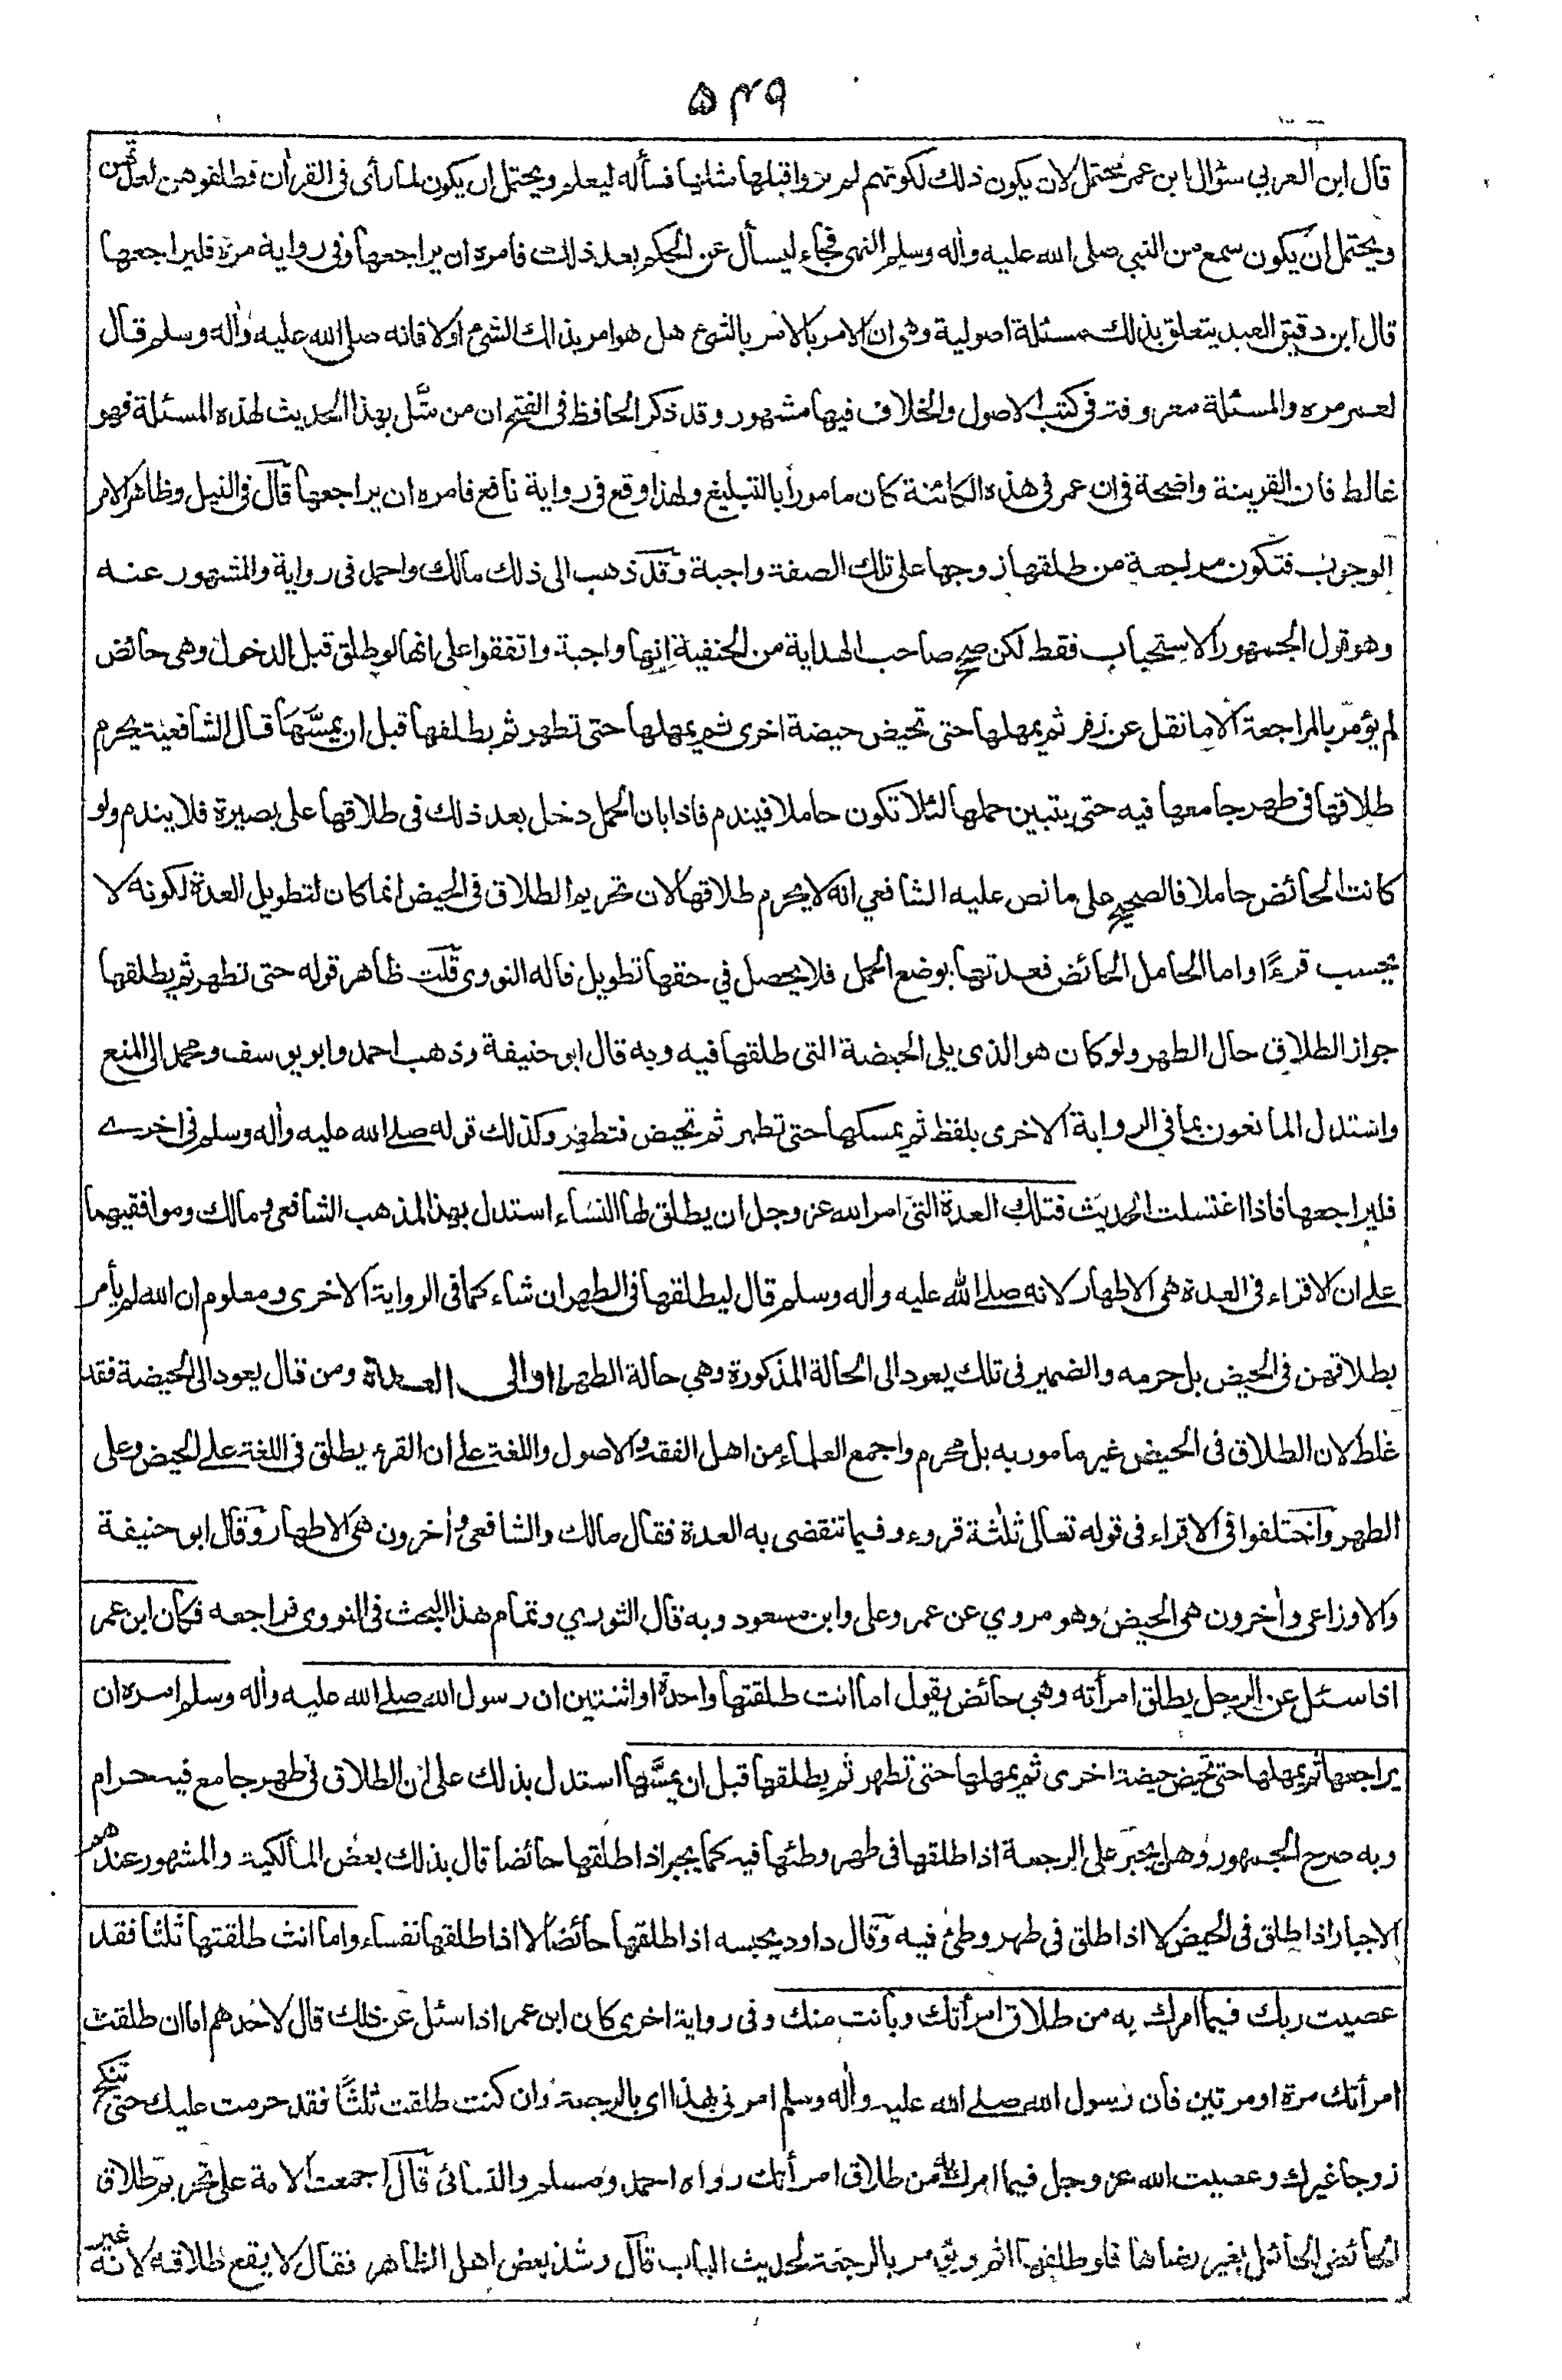 ٥٤٩
قال ابن العربي سئوال ابن عمر محتمل لان يكون ذلك لكونهم لم يروا قبلها مثلها فسأله ليعلم ويحتمل ان يكون لما رأى فى القرأن فطلقوهن لعدتهن
ويحتمل ان يكون سمع من النبي صلى الله عليه وأله وسلم النهى فجاء ليسأل عن الحكم بعد ذلك فامره ان يراجعها وفى رواية مره فليراجعها
قال ابن دقيق العيد يتعلق بذلك مسئلة اصولية وهى ان الامر بالامر بالشئ هل هو امر بذالك الشئ اولا فانه صلى الله عليه وأله وسلم قال
لعمر مره والمسئلة معروفة فى كتب الاصول والخلاف فيها مشهور وقد ذكر الحافظ فى الفتح ان من مثّل بهذا الحديث لهذه المسئلة فهو
غالط فان القرينة واضحة فى ان عمر فى هذه الكائنة كان مامورا بالتبليغ ولهذا وقع فى رواية نافع فامره ان يراجعها قال فى النيل وظاهر الامر
الوجوب فتكون مراجعة من طلقها زوجها على تلك الصفة واجبة وقد ذهب الى ذلك مالك واحمد فى رواية والمشهور عنه
وهو قول الجمهور الاستحباب فقط لكن صحح صاحب الهداية من الحنفية انها واجبة واتفقوا على انها لو طلق قبل الدخول وهى حائض
لم يؤمر بالمراجعة الا ما نقل عن زفر ثم يمهلها حتى تحيض حيضة اخرى ثم يمهلها حتى تطهر ثم يطلقها قبل ان يمسَّها قال الشافعية يحرم
طلاقها فى طهر جامعها فيه حتى يتبين حملها لئلا تكون حاملا فيندم فاذا بان الحمل دخل بعد ذلك فى طلاقها على بصيرة فلا يندم ولو
كانت الحائض حاملا فالصحيح على ما نص عليه الشافعي انه لا يحرم طلاقها لان تحريم الطلاق فى الحيض انما كان لتطويل العدة لكونه لا
يحسب قرءًا واما الحامل الحائض فعدتها بوضع الحمل فلا يحصل في حقها تطويل قاله النووى قلت ظاهر قوله حتى تطهر ثم يطلقها
جواز الطلاق حال الطهر ولو كان هو الذى يلى الحيضة التى طلقها فيه وبه قال ابو حنيفة وذهب احمد وابو يوسف ومحمد الى المنع
واستدل المانعون بما فى الرواية الاخرى بلفظ ثم يمسكها حتى تطهر ثم تحيض فتطهر وكذلك قوله صلى الله عليه وأله وسلم فى اخرى
فليراجعها فاذا اغتسلت الحديث فتلك العدة التى امر الله عز وجل ان يطلق لها النساء استدل بهذا لمذهب الشافعى ومالك وموافقيهما
على ان الاقراء فى العدة هى الاطهار لانه صلى الله عليه وأله وسلم قال ليطلقها فى الطهر ان شاء كما فى الرواية الاخرى ومعلوم ان الله لم يأمر
بطلاقهن فى الحيض بل حرمه والضمير فى تلك يعود الى الحالة المذكورة وهي حالة الطهر او الى العدة ومن قال يعود الى الحيضة فقد
غلط لان الطلاق فى الحيض غير مامور به بل محرم واجمع العلماء من اهل الفقه والاصول واللغة على ان القرء يطلق فى اللغة على الحيض وعلى
الطهر واختلفوا فى الاقراء فى قوله تعالى ثلثة قروء وفيما تنقضى به العدة فقال مالك والشافعى وأخرون هى الاطهار وقال ابو حنيفة
والاوزاعى وأخرون هى الحيض وهو مروي عن عمر وعلى وابن مسعود وبه قال الثوري وتمام هذا البحث فى النووى فراجعه فكان ابن عمر
اذا سئل عن الرجل يطلق امرأته وهي حائض يقول اما انت طلقتها واحدة او اثنتين ان رسول الله صلى الله عليه وأله وسلم امره ان
يراجعها ثم يمهلها حتى تحيض حيضة اخرى ثم يمهلها حتى تطهر ثم يطلقها قبل ان يمسَّها استدل بذلك على ان الطلاق فى طهر جامع فيه حرام
وبه صرح الجمهور وهل يجبر على الرجعة اذا طلقها فى طهر وطئها فيه كما يجبر اذا طلقها حائضا قال بذلك بعض المالكية والمشهور عندهم
الاجبار اذا طلق فى الحيض لا اذا طلق فى طهر وطئ فيه وقال داود يجبسه اذا طلقها حائضا لا اذا طلقها نفساء واما انت طلقتها ثلثا فقد
عصيت ربك فيما امرك به من طلاق امرأتك وبانت منك وفى رواية اخرى كان ابن عمر اذا سئل عن ذلك قال لاحدهم اما ان طلقت
امرأتك مرة او مرتين فان رسول الله صلى الله عليه وأله وسلم امرنى بهذا اى بالرجعة وان كنت طلقت ثلثًا فقد حرمت عليك حتى تنكح
زوجا غيرك وعصيت الله عز وجل فيما امرك به من طلاق امرأتك رواه احمد ومسلم والنسائى قال اجمعت الامة على تحريم طلاق
الحائض الحائل بغير رضاها فلو طلقها اثم ويؤمر بالرجعة لحديث الباب قال وشذ بعض اهل الظاهر فقال لا يقع طلاقه لانه غير